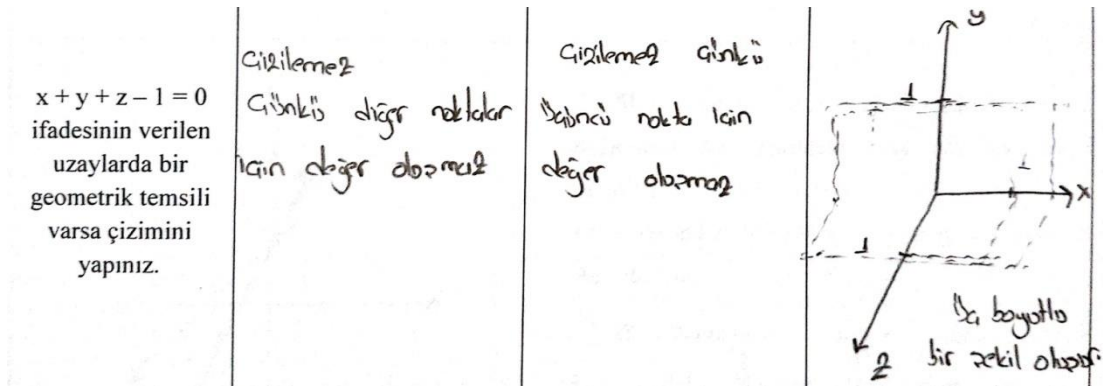 x + y + z – 1 = 0
ifadesinin verilen
uzaylarda bir
geometrik temsili
varsa çizimini
yapınız.
Çizilemez
Çünkü diğer noktalar
için değer olamaz
Çizilemez Çünkü
Üçüncü nokta için
değer olamaz
y
1
1
x
1
z
Üç boyutlu
bir şekil oluşur.